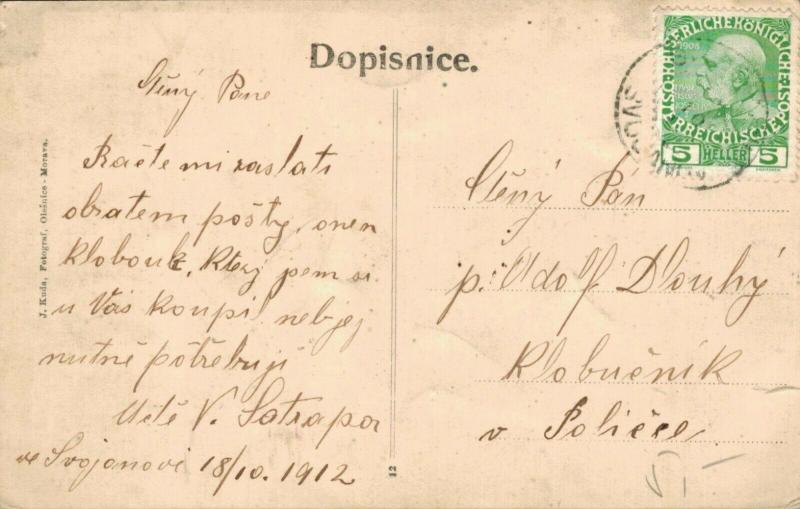 Dopisnice.
Ctěný Pane
Račte mi zaslati
obratem pošty, onen
klobouk, který jsem si
u Vás koupil neb jej
nutně potřebuji
Uctě V. Satrapa
ve Svojanovi 18/10. 1912
J. Kuda, Fotograf, Olešnice - Morava.
12
KAISERLICHE KÖNIGLICHE
ÖSTERREICHISCHE POST
1908
5 HELLER 5
Ctěný Pán
p. Adolf Dlouhý
klobučník
v Poličce